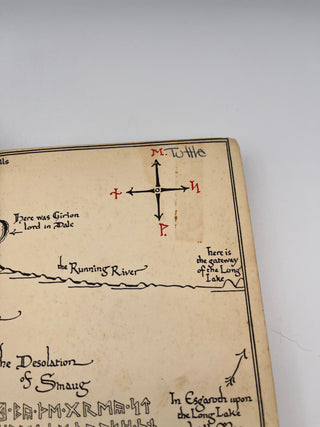 lls
ᛖ. Tuttle
ᚾ ᛋ
ᚹ.
Here was Girion
lord in Dale
here is
the gateway
of the Long
Lake
the Running River
he Desolation
of Smaug
ᛒᚣ·ᚦᛖ·ᚷᚱᛖᚣ·ᛋᛏ
In Esgaroth upon
the Long Lake